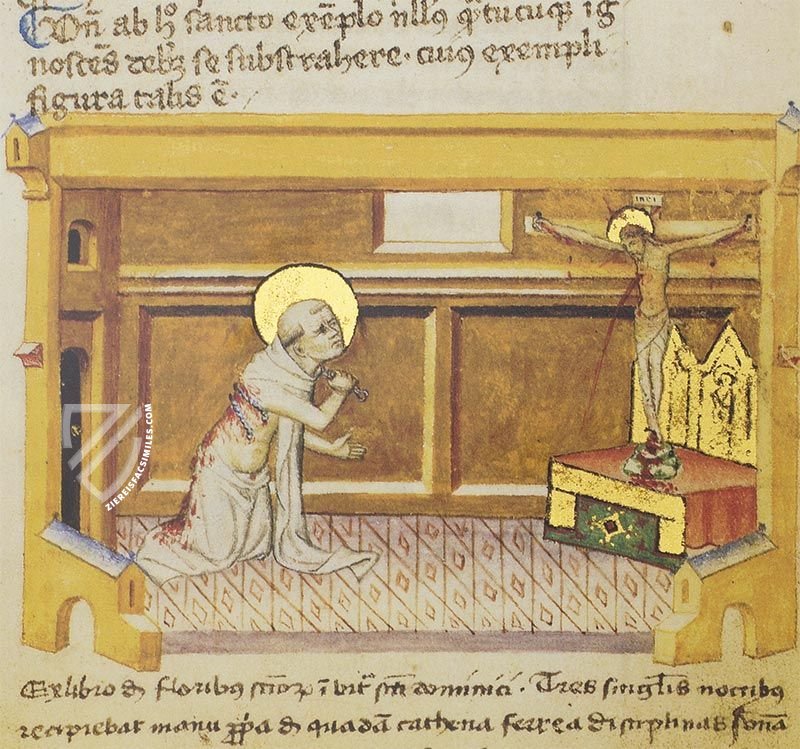 Con ab hͦ sancto exemplo nllus qͣtucuqꝫ ig
noscēs debꝫ se substrahere · cuius exempli
figura talis ē ·
INRI
ZIEREISFACSIMILES.COM
Ex libro de floribus sctorꝫ ī vita scti dominici · Tres singlis noctibus
recipiebat manu ꝓpa de quadā cathena ferrea disciplinas